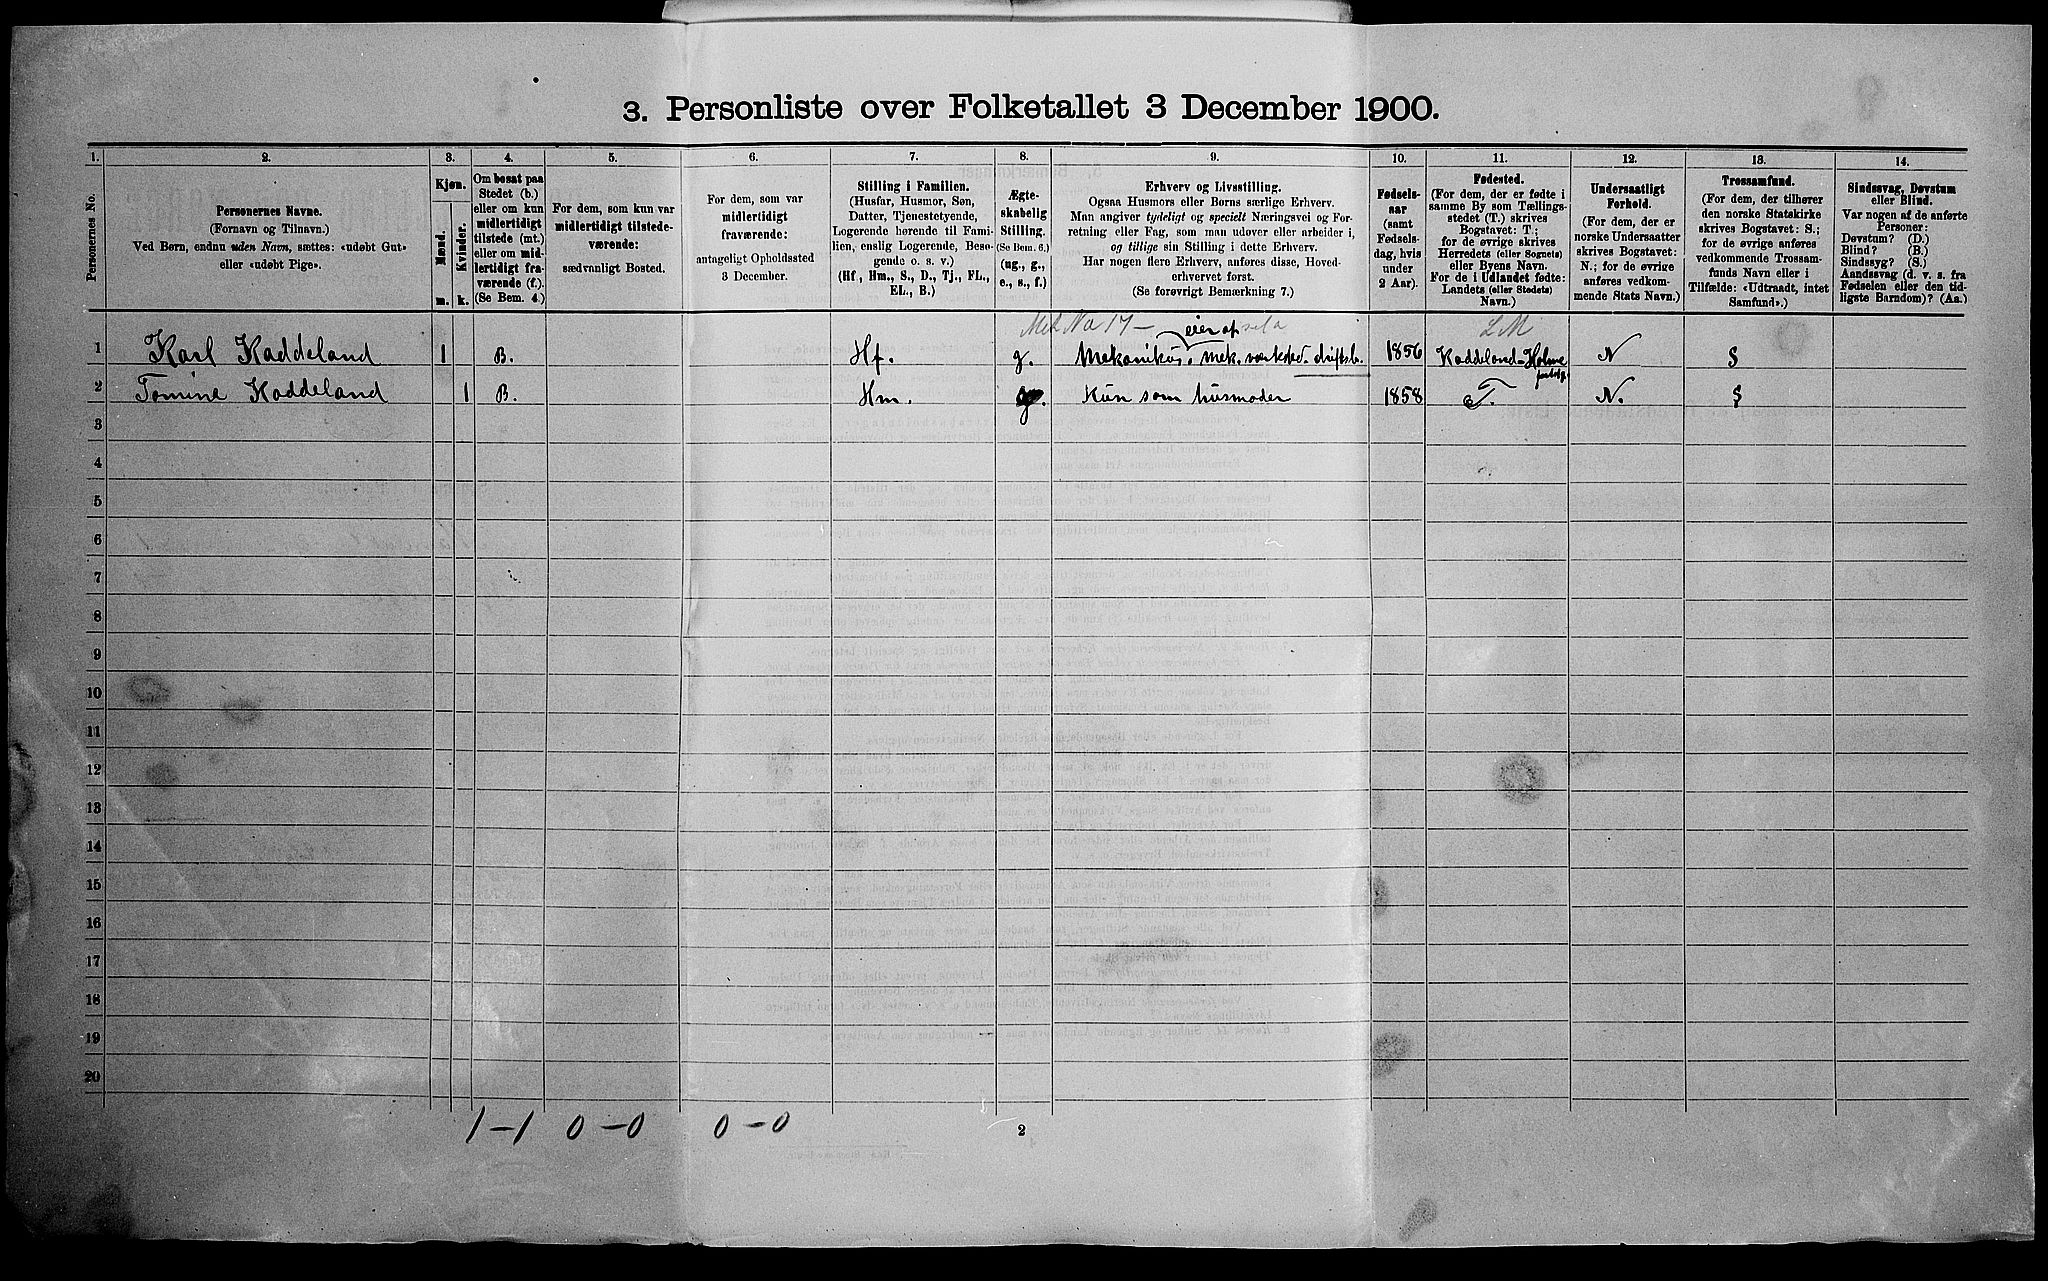 3. Personliste over Folketallet 3 December 1900.
1. 2. 3. 4. 5. 6. 7. 8. 9. 10. 11. 12. 13. 14.
Personernes No.
Personernes Navne.
(Fornavn og Tilnavn.)
Ved Børn, endnu uden Navn, sættes: «udøbt Gut»
eller «udøbt Pige».
Kjøn.
Mænd.
Kvinder.
m. k.
Om bosat paa
Stedet (b.)
eller om kun
midlertidigt
tilstede (mt.)
eller om mid-
lertidigt fra-
værende (f.).
(Se Bem. 4.)
For dem, som kun var
midlertidigt tilstede-
værende:
sædvanligt Bosted.
For dem, som var
midlertidigt
fraværende:
antageligt Opholdssted
3 December.
Stilling i Familien.
(Husfar, Husmor, Søn,
Datter, Tjenestetyende,
Logerende hørende til Fami-
lien, enslig Logerende, Besø-
gende o. s. v.)
(Hf, Hm., S., D., Tj., FL.,
EL., B.)
Ægte-
skabelig
Stilling.
(Se Bem. 6.)
(ug., g.,
e., s., f.)
Erhverv og Livsstilling.
Ogsaa Husmors eller Børns særlige Erhverv.
Man angiver tydeligt og specielt Næringsvei og For-
retning eller Fag, som man udøver eller arbeider i,
og tillige sin Stilling i dette Erhverv.
Har nogen flere Erhverv, anføres disse, Hoved-
erhvervet først.
(Se forøvrigt Bemærkning 7.)
Fødsels-
aar
(samt
Fødsels-
dag, hvis
under
2 Aar).
Fødested.
(For dem, der er fødte i
samme By som Tællings-
stedet (T.) skrives
Bogstavet: T.;
for de øvrige skrives
Herredets (eller Sognets)
eller Byens Navn.
For de i Udlandet fødte:
Landets (eller Stedets)
Navn.)
Undersaatligt
Forhold.
(For dem, der er
norske Undersaatter
skrives Bogstavet:
N.; for de øvrige
anføres vedkom-
mende Stats Navn.)
Trossamfund.
(For dem, der tilhører
den norske Statskirke
skrives Bogstavet: S.;
for de øvrige anføres
vedkommende Trossam-
funds Navn eller i
Tilfælde: «Udtraadt, intet
Samfund».)
Sindssvag, Døvstum
eller Blind.
Var nogen af de anførte
Personer:
Døvstum? (D.)
Blind? (B.)
Sindssyg? (S.)
Aandssvag (d. v. s. fra
Fødselen eller den tid-
ligste Barndom)? (Aa.)
No 17 — eier af LM
1 Karl Kaddeland 1 B. Hf. g. Mekanikus, mek. værksted driftsb. 1856 Kaddeland-Holme N S
2 Tomine Kaddeland 1 B. Hm. g. Kun som husmoder 1858 T. N. S
3
4
5
6
7
8
9
10
11
12
13
14
15
16
17
18
19
20
1-1 0-0 0-0
2